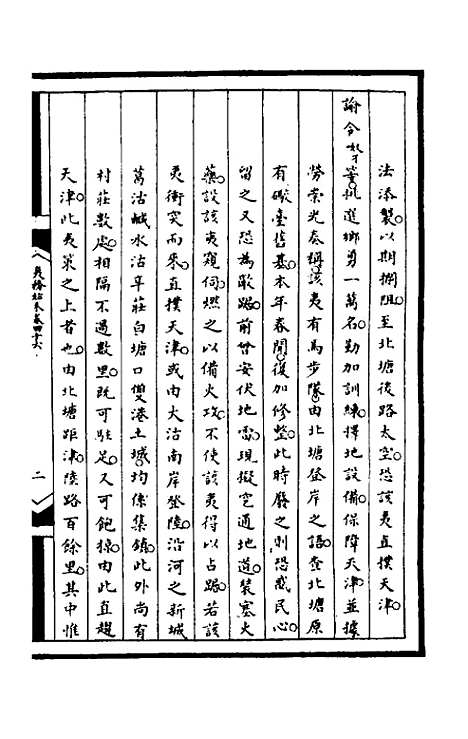 法添製以期攔阻至北塘後路太空恐該夷直撲天津
諭令奴才等挑選鄉勇一萬名勤加訓練擇地設備保障天津並據
勞崇光奏稱該夷有馬步隊由北塘登岸之語查北塘原
有礮臺舊基本年春閒復加修整此時廢之則恐惑民心
留之又恐為敵踞前曾安伏地雷現擬空通地道裝塞火
藥設該夷窺伺燃之以備火攻不使該夷得以占踞若該
夷衝突而來直撲天津或由大沽南岸登陸沿河之新城
葛沽鹹水沽旱莊白塘口雙港土城均係集鎮此外尚有
村莊數處相隔不過數里既可駐足又可飽掠由此直趨
天津此夷策之上者也由北塘距津陸路百餘里其中惟
夷務始末卷四十六
二